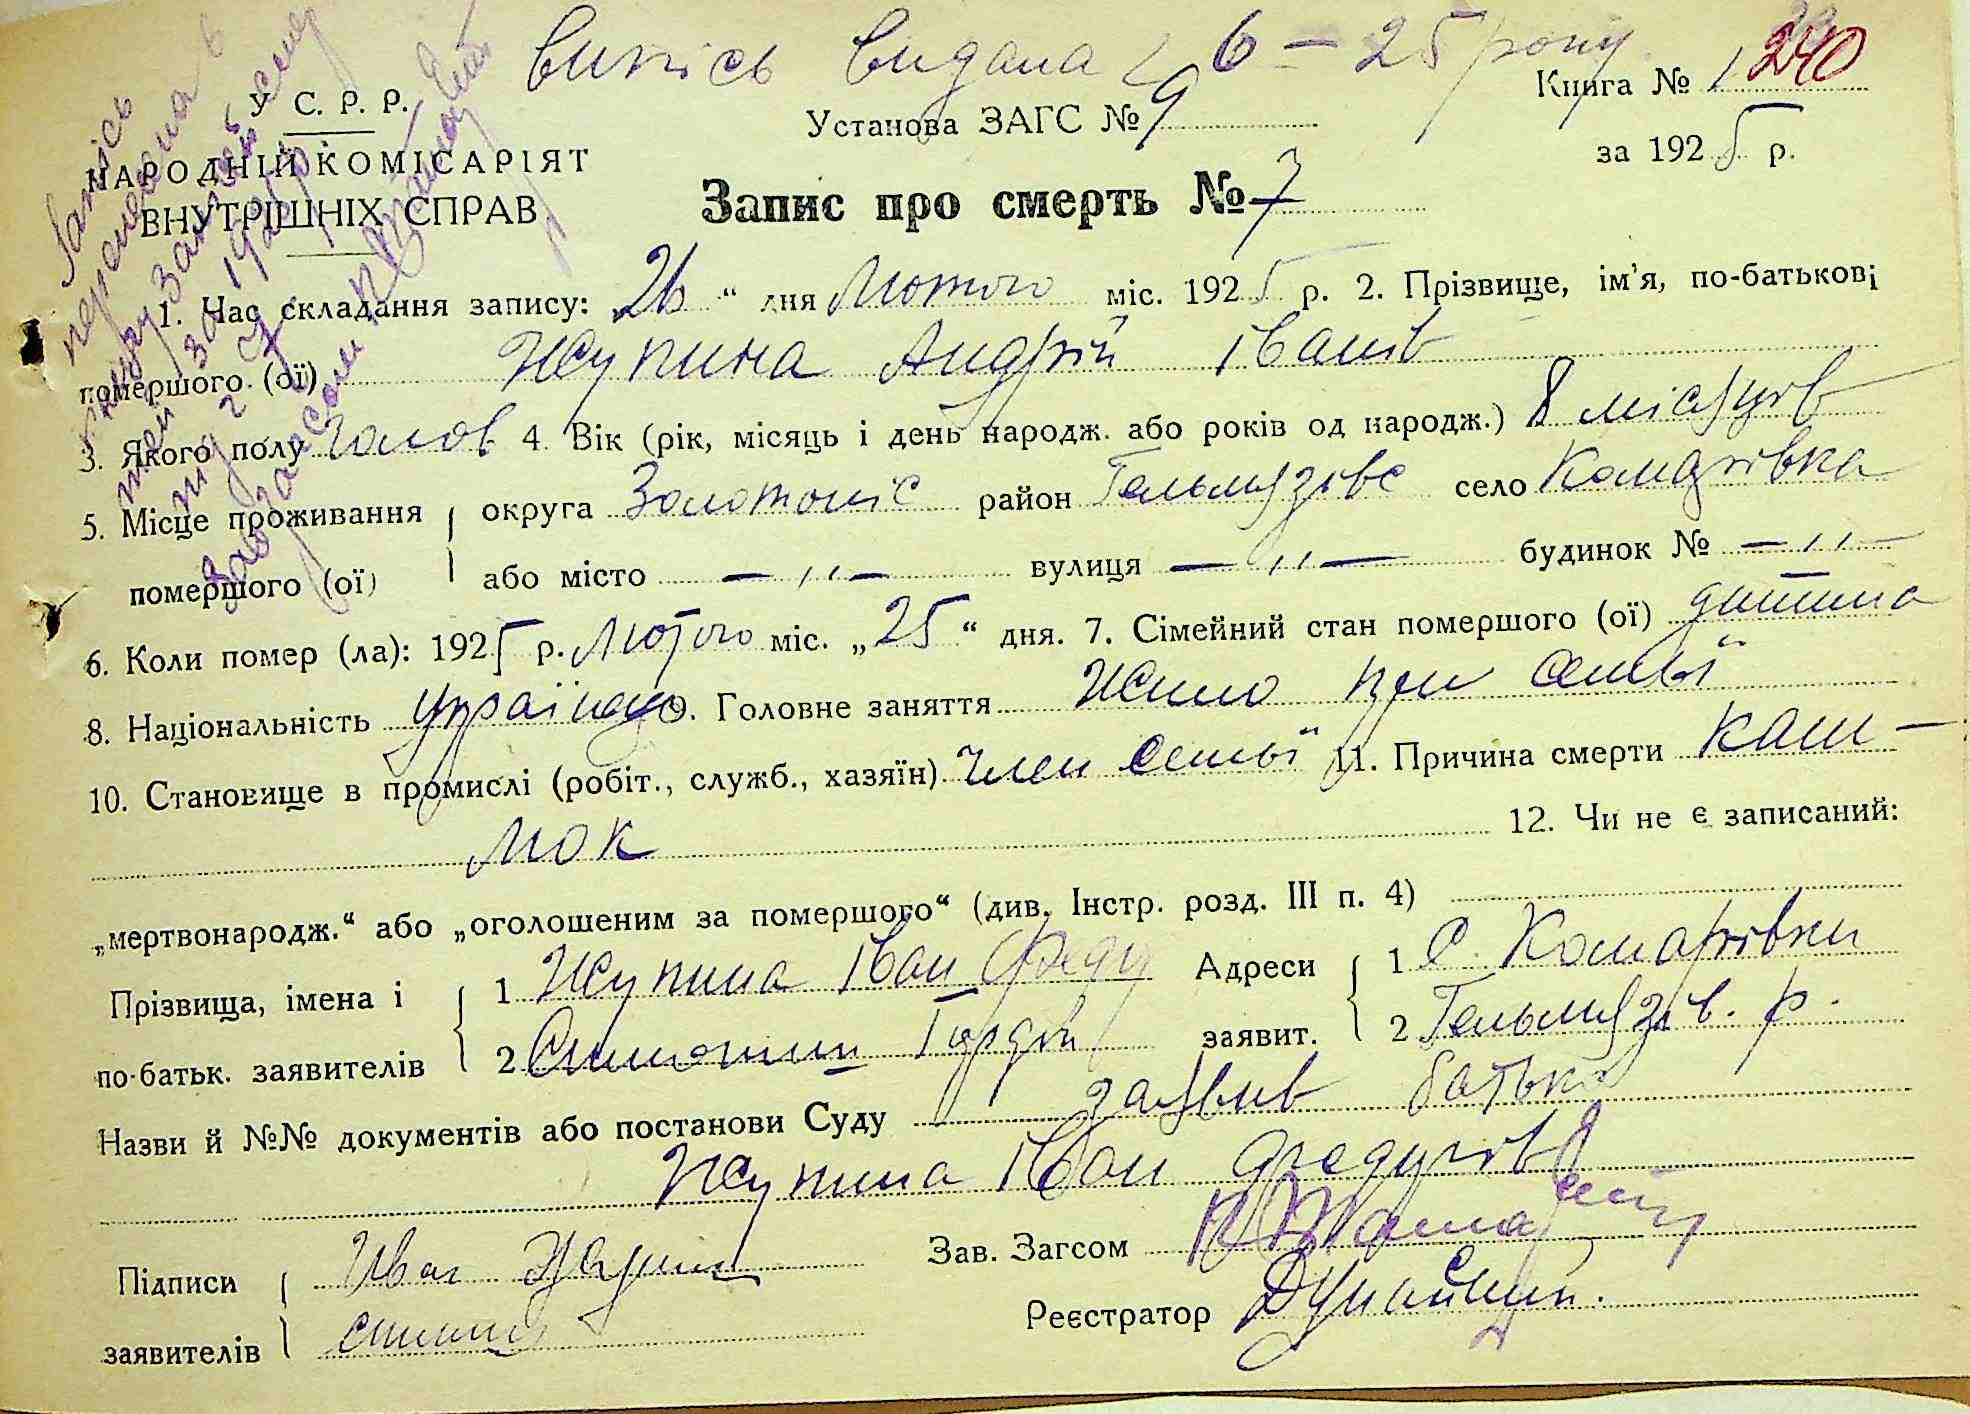 Випісь видана 2 6 – 25 року
У С. Р. Р.
НАРОДНІЙ КОМІСАРІЯТ
ВНУТРІШНІХ СПРАВ
Установа ЗАГС № 9
Книга № 1 240
за 1925 р.
Запис про смерть № 7
1. Час складання запису: „26“ дня Лютого міс. 1925 р. 2. Прізвище, ім'я, по-батькові
помершого (ої) Жупина Андрій Іванів
3. Якого полу Чолов 4. Вік (рік, місяць і день народж. або років од народж.) 8 місяців
5. Місце проживання округа Золотоніс район Гельмязівс село Комарівка
помершого (ої) або місто — „ — вулиця — „ — будинок № — „ —
6. Коли помер (ла): 1925 р. Лютого міс. „25“ дня. 7. Сімейний стан помершого (ої) дитина
8. Національність Українец 9. Головне заняття Жило при семьї
10. Становище в промислі (робіт., служб., хазяїн) член семьї 11. Причина смерти каш-
люк 12. Чи не є записаний:
„мертвонародж.“ або „оголошеним за помершого“ (див. Інстр. розд. III п. 4)
Прізвища, імена і 1 Жупина Іван Феду Адреси 1 С. Комарівки
по-батьк. заявителів 2 Гордій заявит. 2 Гельмязів. р.
Назви й №№ документів або постанови Суду заявив батько
Жупина Іван
Підписи Иван Жупина Зав. Загсом
заявителів Реєстратор